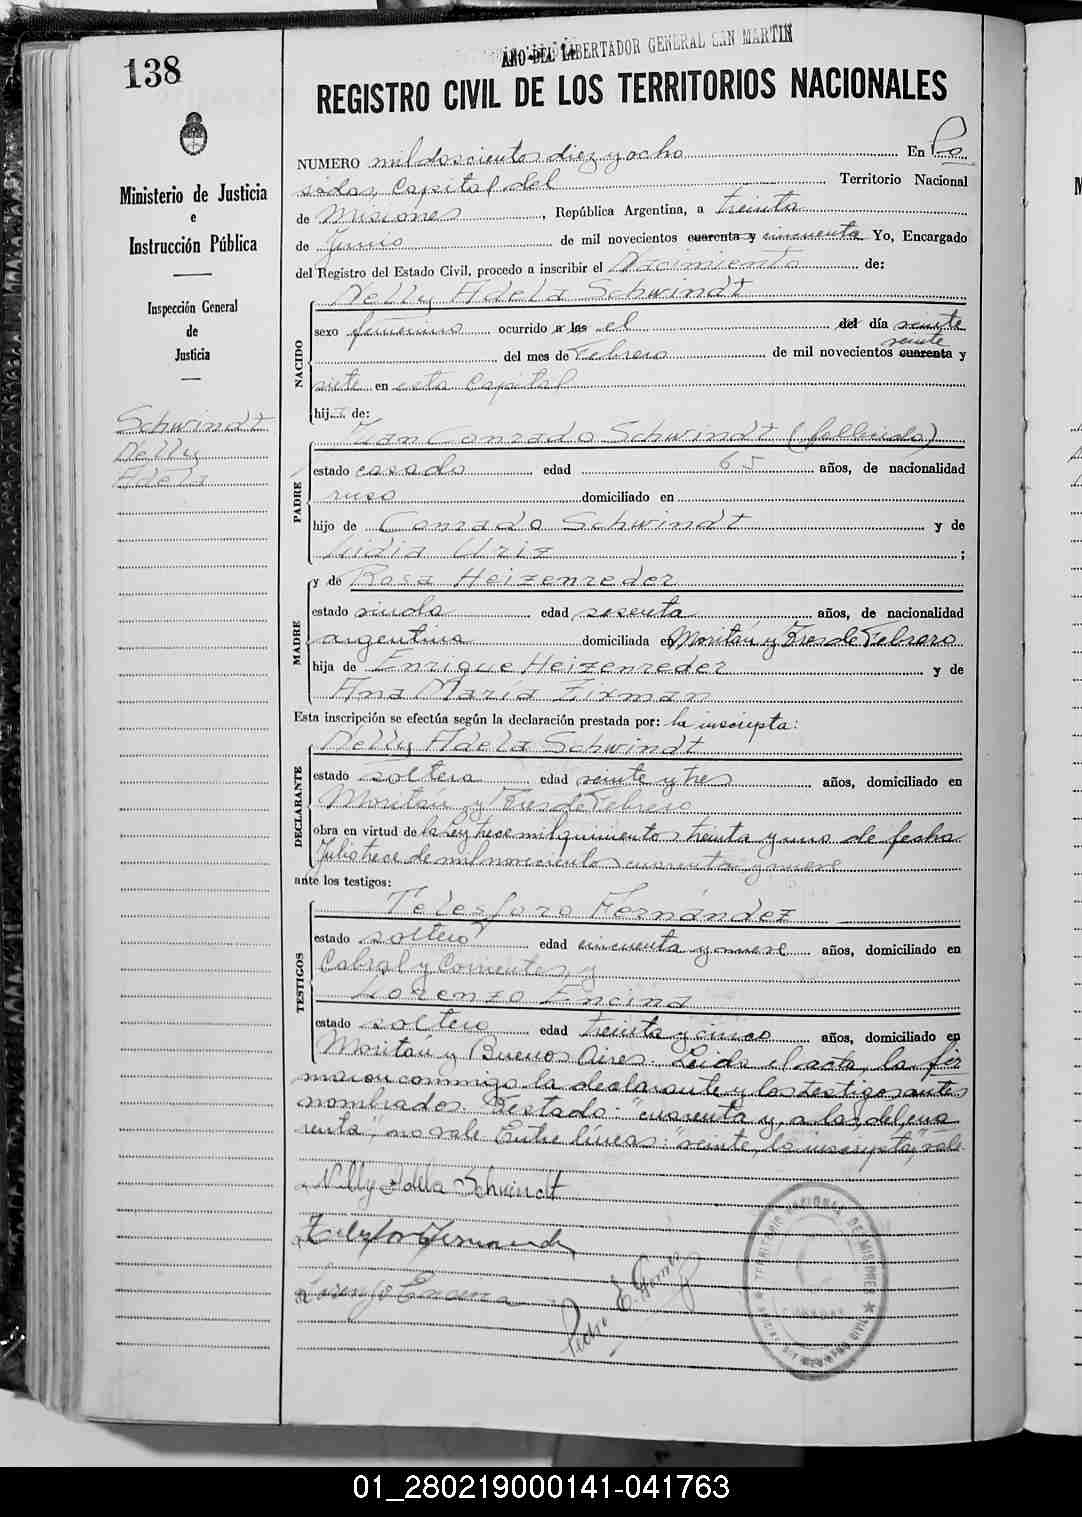 138
AÑO DEL LIBERTADOR GENERAL SAN MARTIN
REGISTRO CIVIL DE LOS TERRITORIOS NACIONALES
Ministerio de Justicia
e
Instrucción Pública
Inspección General
de
Justicia
Schwindt
Nelly
Adela
NUMERO mil doscientos diez y ocho En Po
sadas, Capital del Territorio Nacional
de Misiones, República Argentina, a treinta
de Junio de mil novecientos cuarenta y cincuenta Yo, Encargado
del Registro del Estado Civil, procedo a inscribir el Nacimiento de:
NACIDO
Nelly Adela Schwindt
sexo femenino ocurrido a las el del día veinte
veinte
del mes de Febrero de mil novecientos cuarenta y
siete en esta Capital
hij... de:
PADRE
Juan Conrado Schwindt (fallecido)
estado casado edad 65 años, de nacionalidad
ruso domiciliado en
hijo de Conrado Schwindt y de
Lidia Uriz;
MADRE
y de Rosa Heizenreder
estado viuda edad sesenta años, de nacionalidad
argentina domiciliada en Moritán y Tres de Febrero
hija de Enrique Heizenreder y de
Ana María Zixman
Esta inscripción se efectúa según la declaración prestada por: la inscripta:
DECLARANTE
Nelly Adela Schwindt
estado soltera edad veinte y tres años, domiciliado en
Moritán y Tres de Febrero
obra en virtud de la Ley trece mil quinientos treinta y uno de fecha
Julio trece de mil novecientos cuarenta y nueve
ante los testigos:
TESTIGOS
Telesforo Fernández
estado soltero edad cincuenta y nueve años, domiciliado en
Cabral y Corrientes, y
Lorenzo Encina
estado soltero edad treinta y cinco años, domiciliado en
Moritán y Buenos Aires. Leida el acta, la fir
maron conmigo la declarante y los testigos antes
nombrados. Testado: "cuarenta y, a las, del, cua
renta", no vale. Entre líneas: "veinte, la inscripta", vale.
Nelly Adela Schwindt
Telesforo Fernandez
Lorenzo Encina
Pedro E. Gomez
TERRITORIO NACIONAL DE MISIONES
01_280219000141-041763